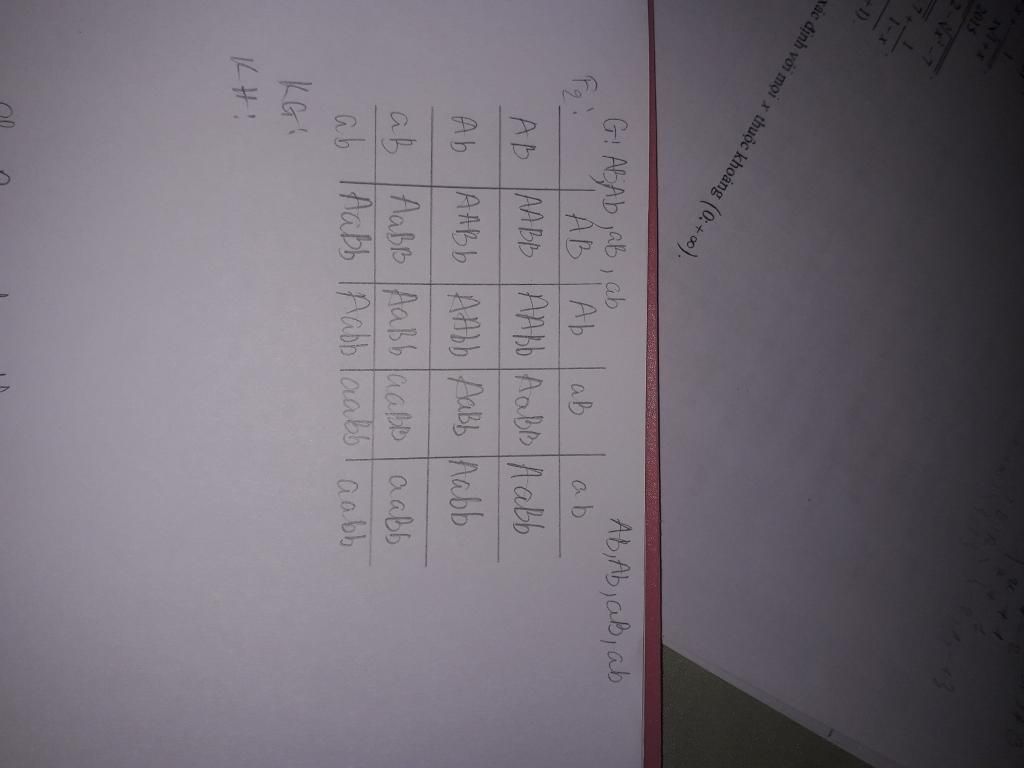 xác định với mọi x thuộc khoảng (0;+∞).
G: AB,Ab, aB, ab AB,Ab, aB, ab
F2:
AB Ab aB ab
AB AABB AABb AaBB AaBb
Ab AABb AAbb AaBb Aabb
aB AaBB AaBb aaBB aaBb
ab AaBb Aabb aaBb aabb
KG:
KH: